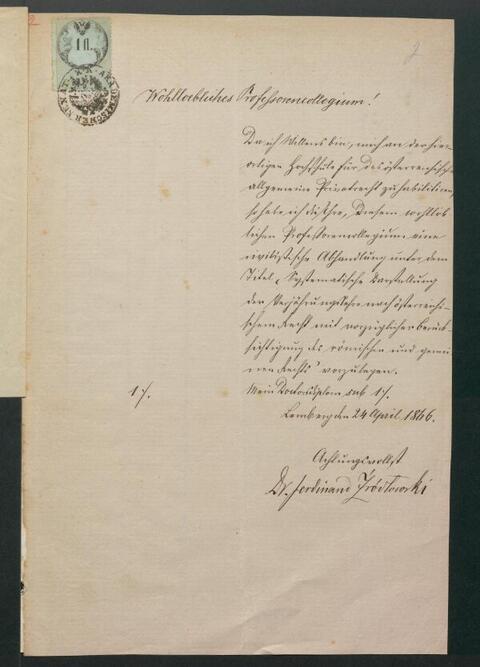 2
1 fl.
2
Wohlloebliches Professorencollegium!
Da ich Willens bin, mich an der hier-
ortigen Hochschule für das österreichische
allgemeine Privatrecht zu habilitiren,
so habe ich die Ehre, Diesem wohllöb-
lichen Professorencollegium eine
civilistische Abhandlung unter dem
Titel „Systematische Darstellung
der Verjährungslehre nach österrei-
schem Recht mit vorzüglicher Berück-
sichtigung des römischen und gemei-
nen Rechts" vorzulegen.
1/.
Mein Doctorsdiplom sub 1/.
Lemberg den 24 April 1866.
Achtungsvollst
Dr. Ferdinand Źródłowski